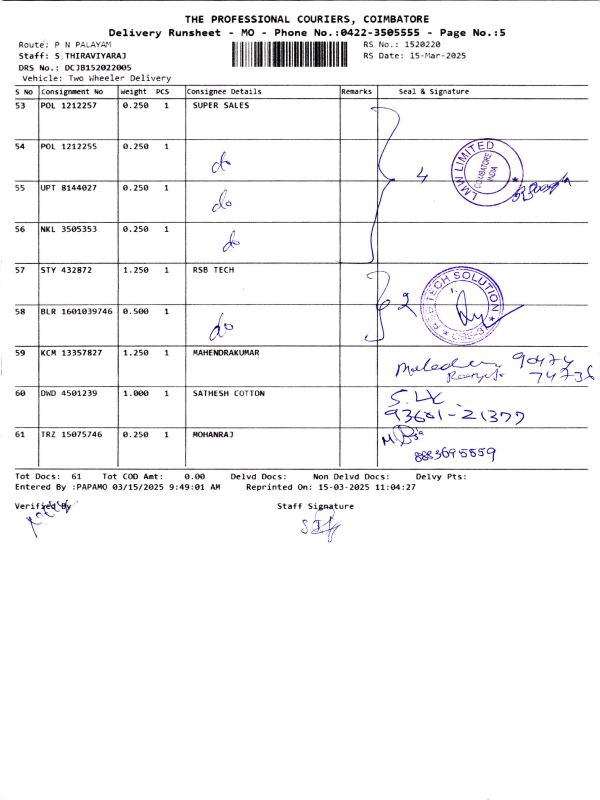 THE PROFESSIONAL COURIERS, COIMBATORE
Delivery Runsheet - MO - Phone No.:0422-3505555 - Page No.:5
Route: P N PALAYAM RS No.: 1520220
Staff: S THIRAVIYARAJ RS Date: 15-Mar-2025
DRS No.: DCJB152022005
Vehicle: Two Wheeler Delivery
S No Consignment No Weight PCS Consignee Details Remarks Seal & Signature
53 POL 1212257 0.250 1 SUPER SALES
54 POL 1212255 0.250 1 do 4 LMW LIMITED COIMBATORE INDIA
55 UPT 8144027 0.250 1 do
56 NKL 3505353 0.250 1 do
57 STY 432872 1.250 1 RSB TECH
58 BLR 1601039746 0.500 1 do 2 RSB TECH SOLUTION
59 KCM 13357827 1.250 1 MAHENDRAKUMAR 90474
74736
60 DWD 4501239 1.000 1 SATHESH COTTON
93601-21377
61 TRZ 15075746 0.250 1 MOHANRAJ
8883695559
Tot Docs: 61 Tot COD Amt: 0.00 Delvd Docs: Non Delvd Docs: Delvy Pts:
Entered By :PAPAMO 03/15/2025 9:49:01 AM Reprinted On: 15-03-2025 11:04:27
Verified By Staff Signature